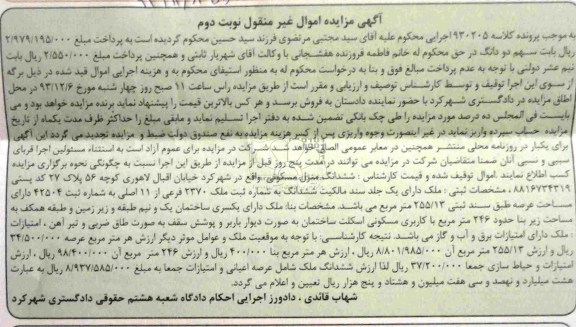 آگهی مزایده اموال غیر منقول نوبت دوم
به موجب پرونده کلاسه ۹۳۰۲۰۵ اجرایی محکوم علیه آقای سید مجتبی مرتضوی فرزند سید حسین محکوم گردیده است به پرداخت مبلغ ۲/۹۷۹/۱۹۵/۰۰۰
ریال بابت سهم دو دانگ در حق محکوم له خانم فاطمه فروزنده هفشجانی با وکالت آقای شهریار ثابتی و همچنین پرداخت مبلغ ۲/۵۵۰/۰۰۰ ریال بابت
نیم عشر دولتی با توجه به عدم پرداخت مبالغ فوق و بنا به درخواست محکوم له به منظور استیفای محکوم به و هزینه اجرایی اموال قید شده در ذیل برگه
از سوی این اجرا توقیف و توسط کارشناس توصیف و ارزیابی و مقرر است از طریق مزایده راس ساعت ۱۱ صبح روز چهار شنبه مورخ ۹۳/۱۲/۶ در محل
اطاق مزایده در دادگستری شهرکرد با حضور نماینده دادستان به فروش برسد و هر کس بالاترین قیمت را پیشنهاد نماید برنده مزایده خواهد بود و می
بایست فی المجلس ده درصد مورد مزایده را طی چک بانکی تضمین شده به دفتر اجرا تسلیم نماید و مابقی مبلغ را حداکثر ظرف مدت یکماه از تاریخ
مزایده به حساب سپرده واریز نماید در غیر اینصورت وجوه واریزی پس از کسر هزینه مزایده به نفع صندوق دولت ضبط و مزایده تجدید می گردد این آگهی
برای یکبار در روزنامه محلی منتشر همچنین در معابر عمومی الصاق خواهد شد شرکت در مزایده برای عموم آزاد است به استثناء مسئولین اجرا قربای
سببی و نسبی آنان ضمنا متقاضیان شرکت در مزایده می توانند در مدت پنج روز قبل از مزایده از طریق این اجرا نسبت به چگونگی نحوه برگزاری مزایده
کسب اطلاع نمایند. اموال توقیف شده و قیمت کارشناس : ششدانگ منزل مسکونی واقع در شهرکرد خیابان اقبال لاهوری کوچه ۵۶ پلاک ۲۷ کد پستی
۸۸۱۶۷۳۴۳۱۹ : مشخصات ثبتی : ملک دارای یک جلد سند مالکیت ششدانگ به شماره ثبت ملک ۲۳۷۰ فرعی از ۱۱ اصلی به شماره ثبت ۴۲۵۰۴ دارای
مساحت عرصه طبق سند ثبتی ۲۵۵/۱۳ متر مربع می باشد. مشخصات بنا: ملک دارای یکسری ساختمان یک و نیم طبقه و زیر زمین و طبقه همکف به
مساحت زیر بنا حدود ۲۴۶ متر مربع با کاربری مسکونی اسکلت ساختمان به صورت دیوار باربر و پوشش سقف به صورت طاق ضربی و تیر آهن ، امتیازات
: ملک دارای امتیازات برق و آب و گاز می باشد. نتیجه کارشناسی: با توجه به موقعیت ملک و عوامل موثر دیگر ارزش هر متر مربع عرصه ۳۴/۵۰۰/۰۰۰
ریال و ارزش ۲۵۵/۱۳ متر مربع آن ۸/۸۰۱/۹۸۵/۰۰۰ ریال ، ارزش هر متر مربع بنا ۴۰۰/۰۰۰ ریال و ارزش ۲۴۶ متر مربع آن ۹۸/۴۰۰/۰۰۰ ریال ، ارزش
امتیازات و حیاط سازی جمعا ۳۷/۲۰۰/۰۰۰ ریال لذا ارزش ششدانگ ملک شامل عرصه اعیانی و امتیازات جمعا به مبلغ ۸/۹۳۷/۵۸۵/۰۰۰ ریال به عبارت
هشت میلیارد و نهصد و سی هفت میلیون و هشتاد و پنج هزار ریال تعیین و اعلام می گردد.
شهاب قائدی ، دادورز اجرایی احکام دادگاه شعبه هشتم حقوقی دادگستری شهرکرد